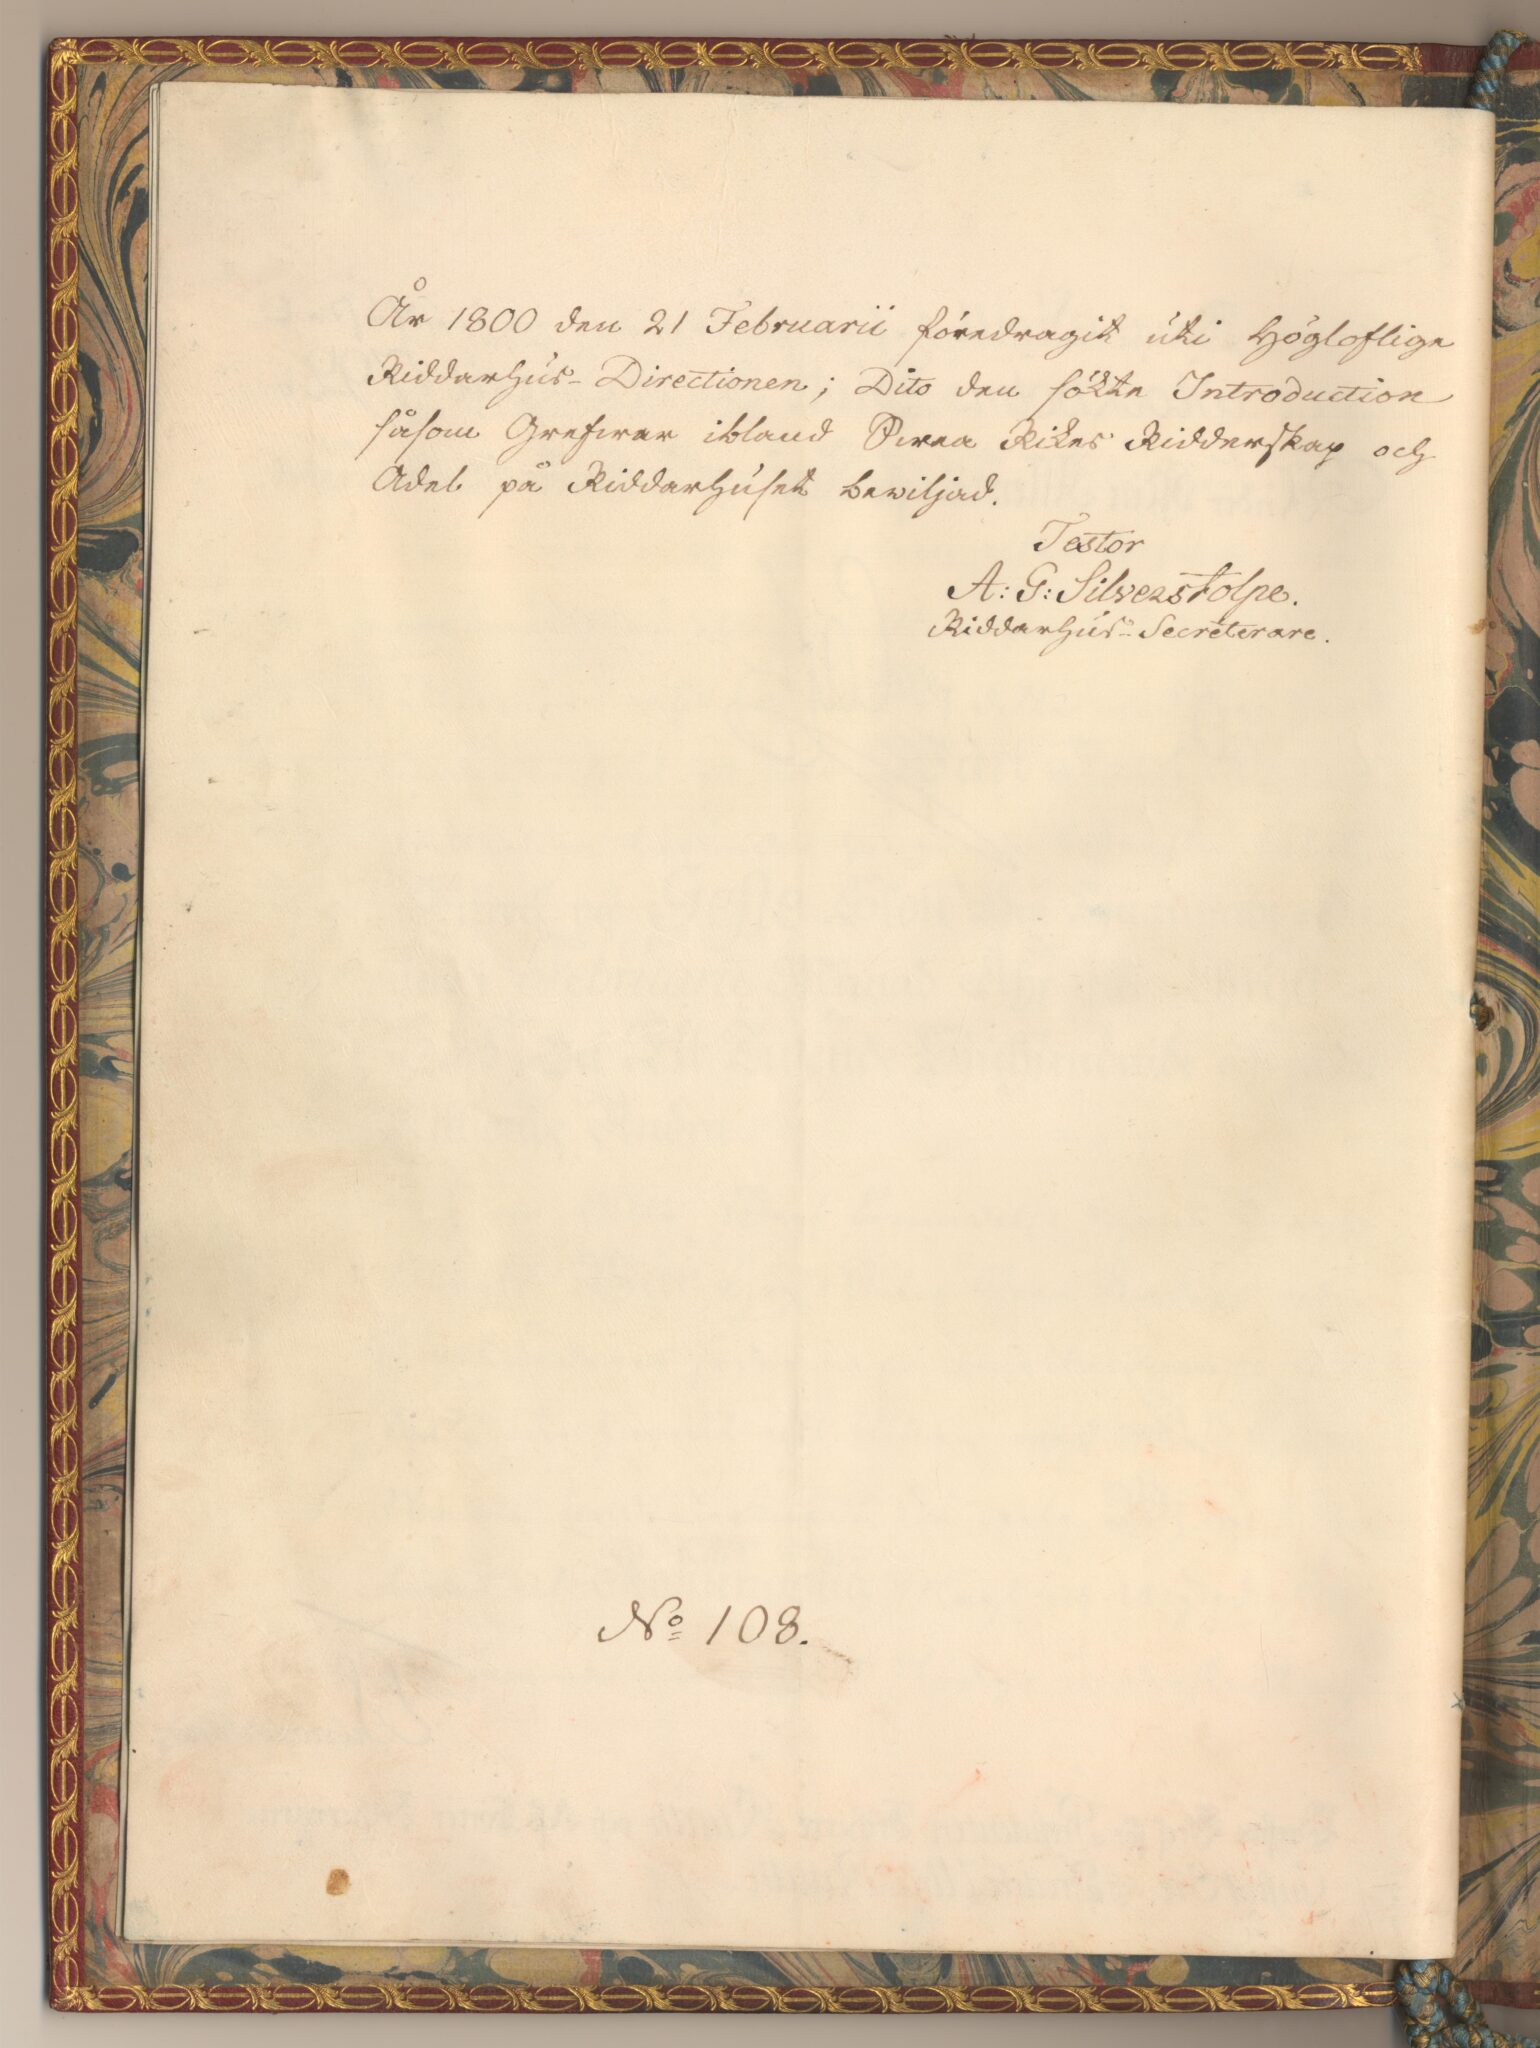 År 1800 den 21 Februarii föredragit uti Höglofliga
Riddarhus-Directionen; Dito den sökte Introduction
såsom Grefwar ibland Swea Rikes Ridderskap och
Adel på Riddarhuset bewiljad.
Testor
A: G: Silverstolpe.
Riddarhus-Secreterare.
No 108.